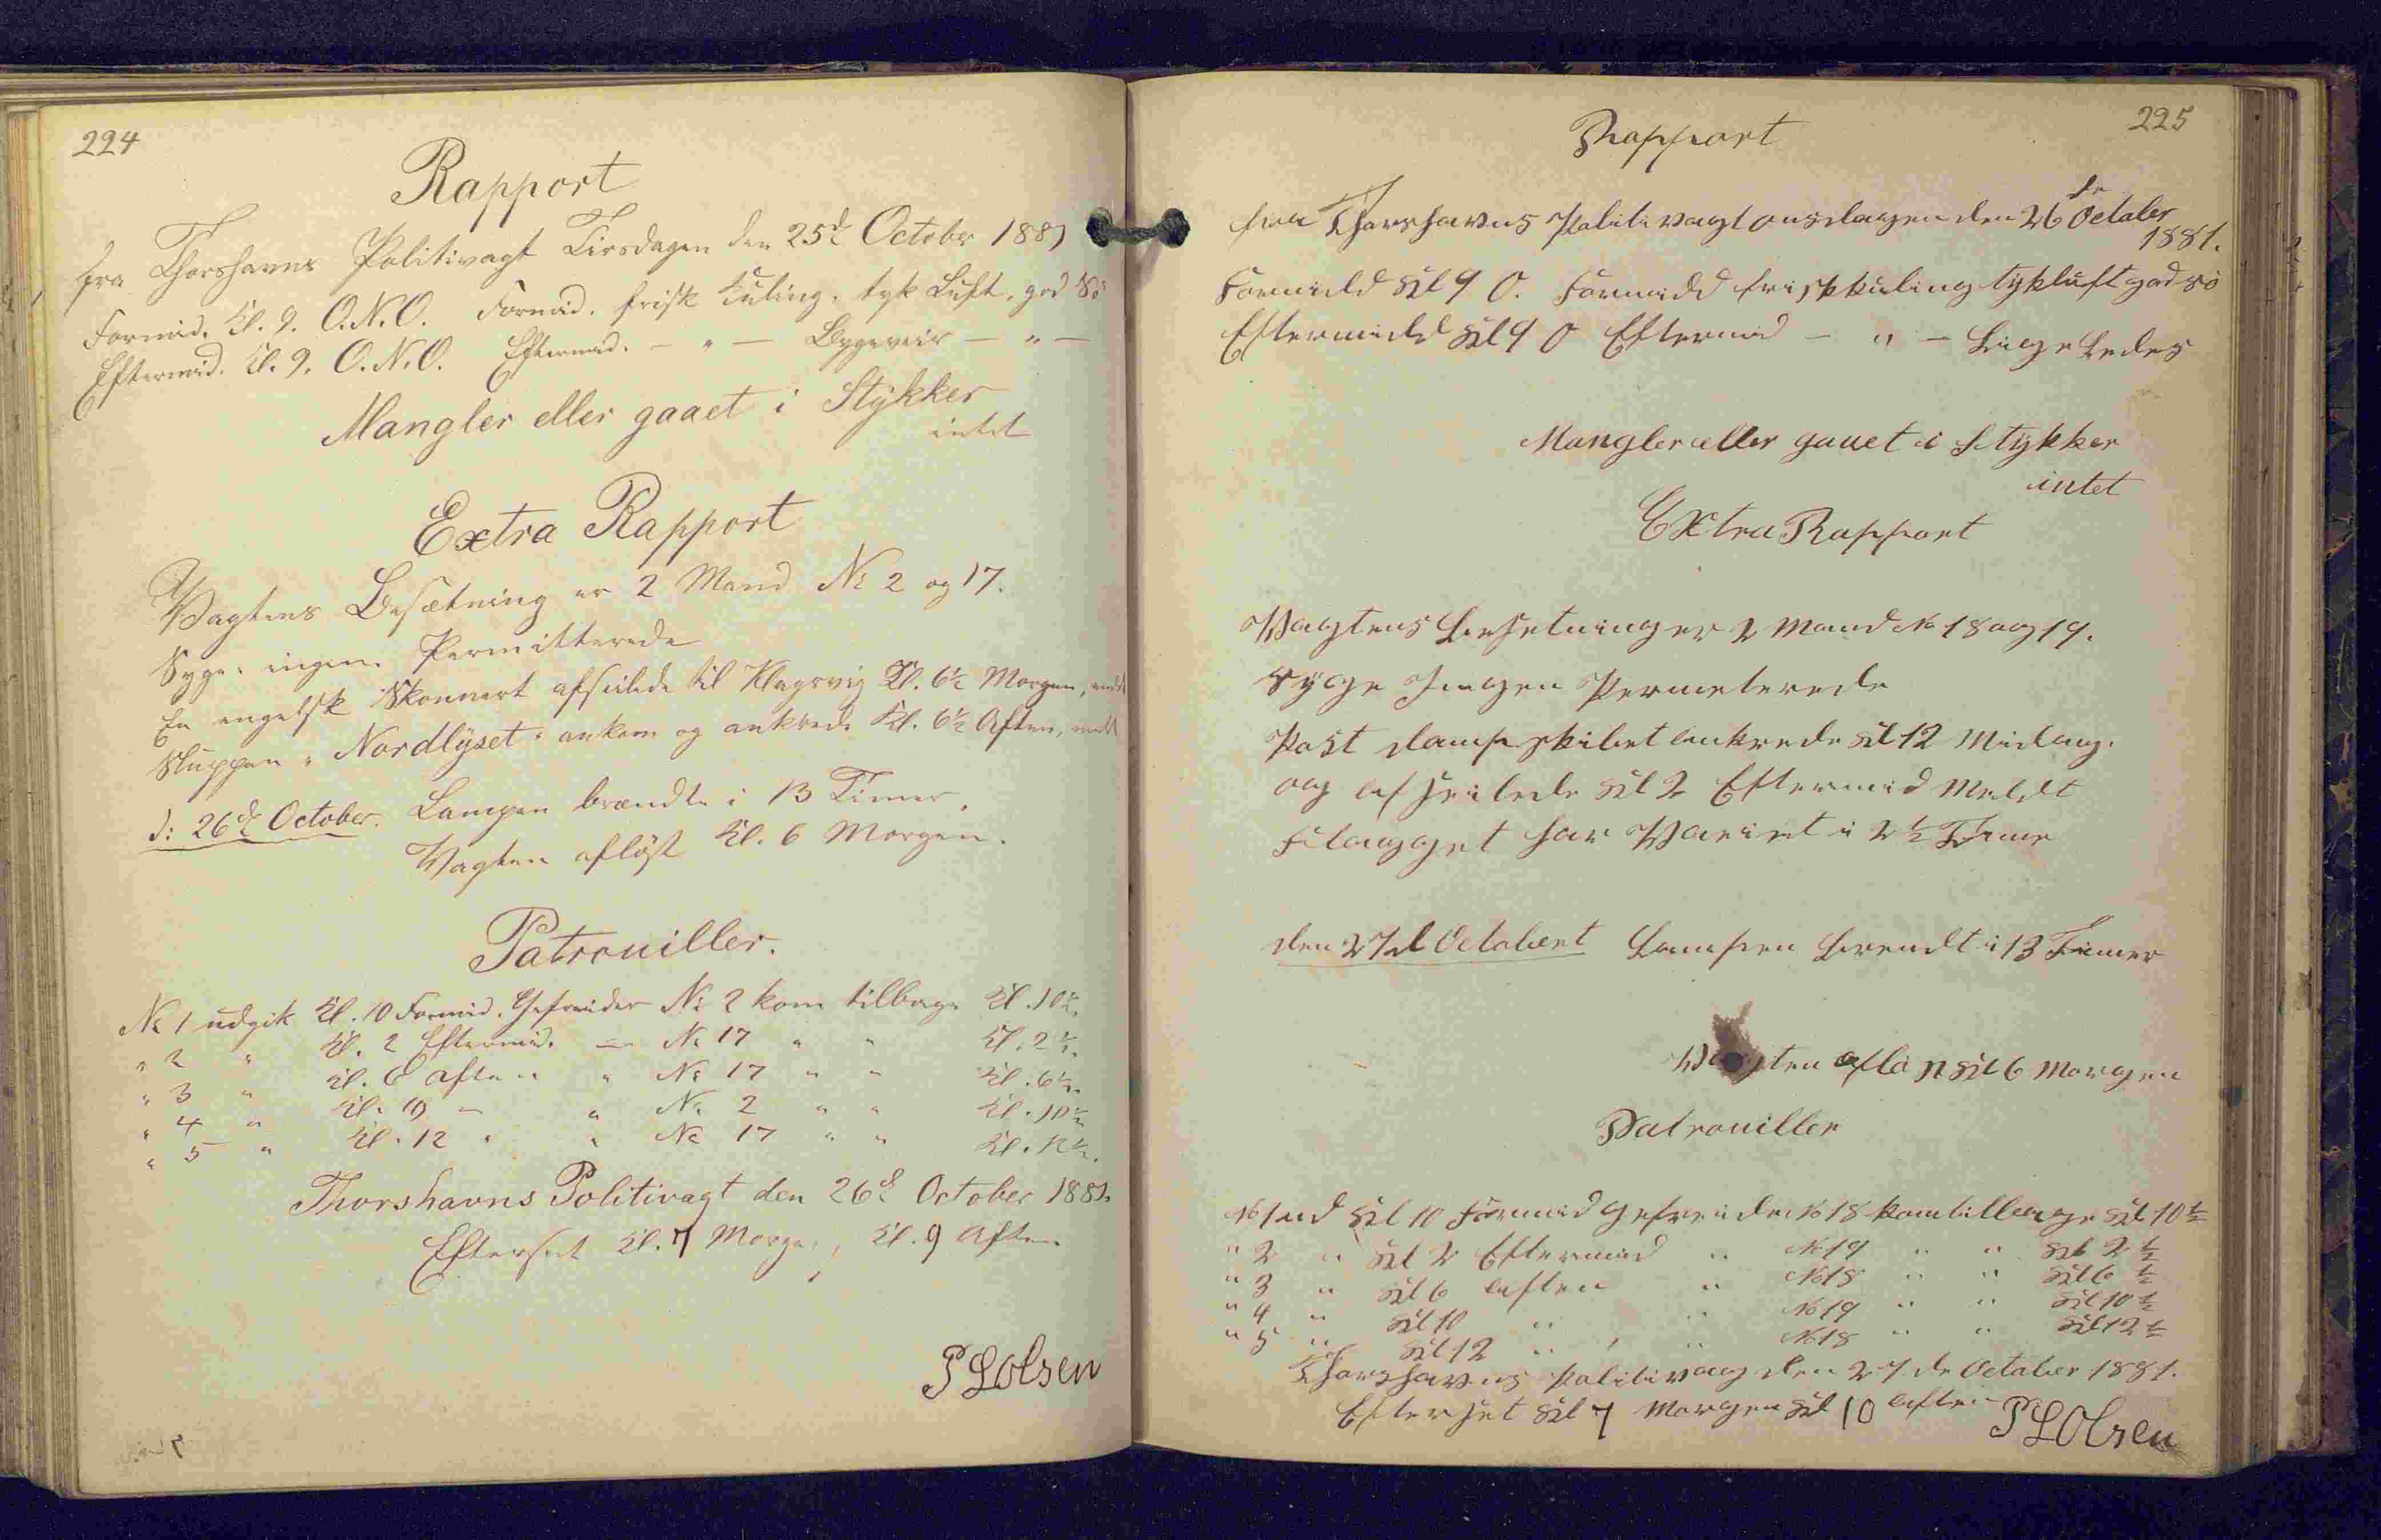 224
Rapport
fra Thorshavns Politivagt Tirsdagen den 25d October 1881
Formid. Kl. 9. O.N.O. Formid. frisk Kuling. tyk Luft. god Sö
Eftermid. Kl. 9. O.N.O. Eftermid. — " — Bygeveir — " —
Mangler eller gaaet i Stÿkker
intet
Extra Rapport
Vagtens Besætning er 2 Mand No 2 og 17.
Syge: ingen Permitterede
En engelsk Skonnert afseilede til Klagsvig Kl. 6½ Morgen,
Sluppen "Nordlÿset" ankom og ankrede Kl. 6½ Aften,
d: 26de October. Lampen brændte i 13 Timer.
Vagten aflöst Kl. 6 Morgen.
Patrouiller.
No 1 udgik Kl. 10 Formid. Gefreider No 2 kom tilbage Kl. 10½.
" 2 " Kl. 2 Eftermid. — No 17 " " Kl. 2½.
" 3 " Kl. 6 Aften " No 17 " " Kl. 6½.
" 4 " Kl. 10 — " No 2 " " Kl. 10½
" 5 " Kl. 12 " " No 17 " " Kl. 12½.
Thorshavns Politivagt den 26d October 1881.
Efterseet Kl. 7 Morgen, Kl. 9 Aften
P L Olsen
225
Rapport
fra Thorshavns Politivagt onsdagen den 26de Octaber
1881.
Formidd Kl 9 O. Formidd frisk kuling tykluft god sö
Eftermidd Kl 9 O Eftermid — " — Lige Ledes
Mangler eller gaaet i Stÿkker
intet
Extra Rapport
Vagtens Besetning er 2 Mand No 18 og 19.
Sÿge Ingen Permeterede
Post damp skibet ankrede Kl 12 Midag.
og afseilede Kl 2 Eftermid Meldt
Flagget har Vaeiet i 2½ Time
den 27d Octobert Lampen Brendt i 13 Timer
Vagten aflöst Kl 6 Morgen
Patrouiller
No 1 ud Kl 10 Formid Gefreide No 18 kom tillbage Kl 10½
" 2 " Kl 2 Eftermid " No 19 " " Kl 2½
" 3 " Kl 6 aften " No 18 " " Kl 6½
" 4 " Kl 10 " " No 19 " " Kl 10½
" 5 " Kl 12 " " No 18 " " Kl 12½
Thorshavns Politivag den 27de October 1881.
Efterset Kl 7 Morgen Kl 10 aften
P L Olsen